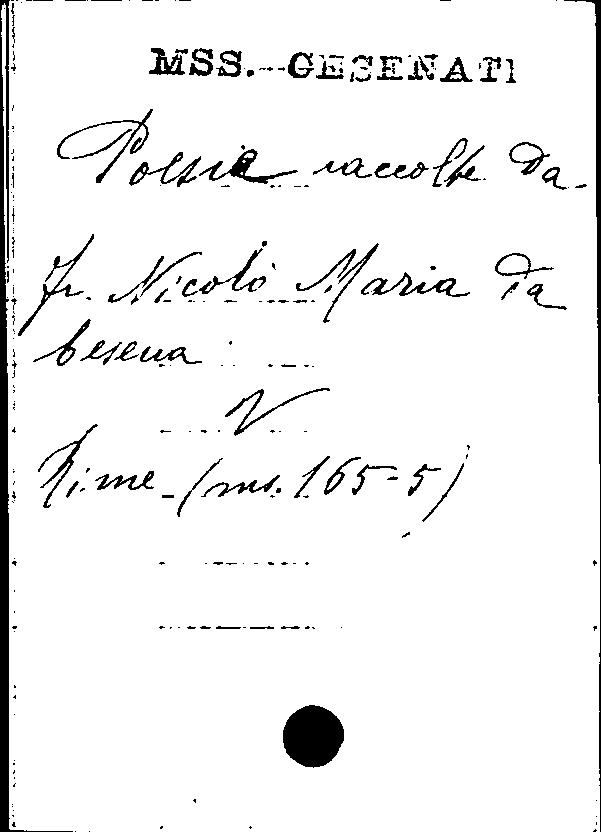 MSS. CESENATI
Poesie raccolte da
Fr. Nicolò Maria da
Cesena
V
Rime (ms. 165-5)